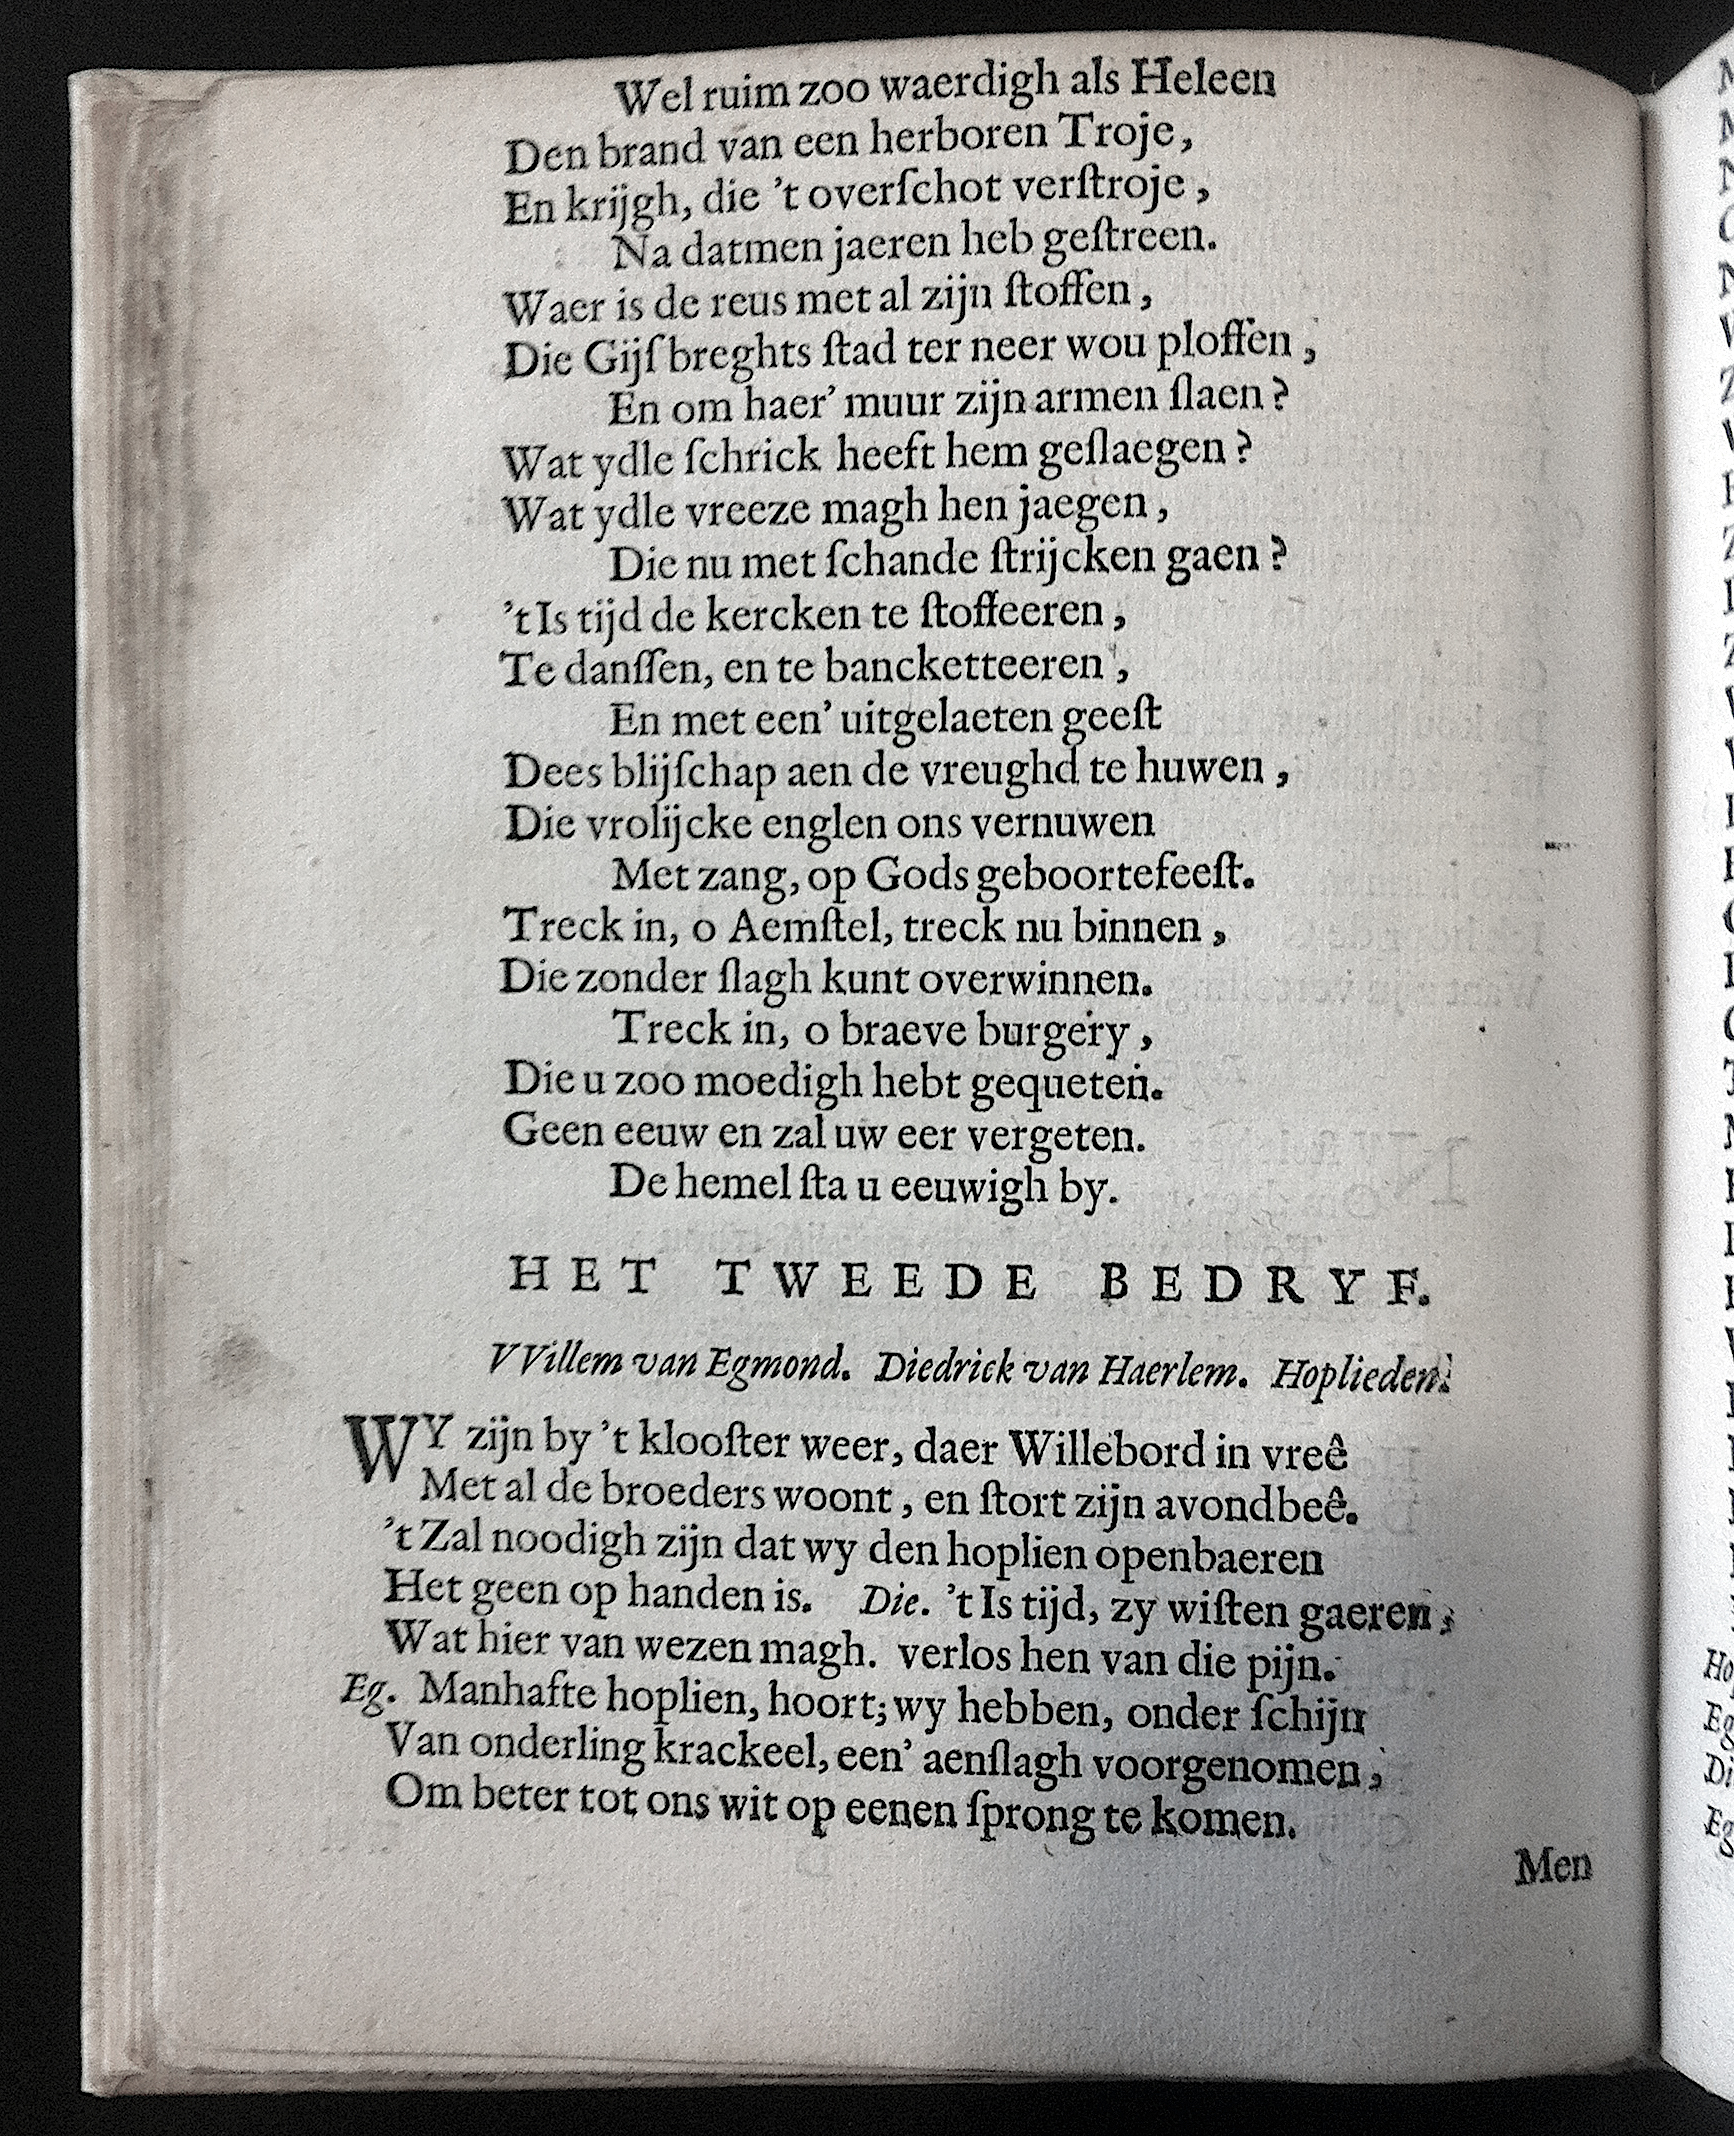 Wel ruim zoo waerdigh als Heleen
Den brand van een herboren Troje,
En krijgh, die 't overſchot verſtroje,
Na datmen jaeren heb geſtreen.
Waer is de reus met al zijn ſtoffen,
Die Gijſbreghts ſtad ter neer wou ploffen,
En om haer' muur zijn armen ſlaen?
Wat ydle ſchrick heeft hem geſlaegen?
Wat ydle vreeze magh hen jaegen,
Die nu met ſchande ſtrijcken gaen?
't Is tijd de kercken te ſtoffeeren,
Te danſſen, en te bancketteeren,
En met een' uitgelaeten geeſt
Dees blijſchap aen de vreughd te huwen,
Die vrolijcke englen ons vernuwen
Met zang, op Gods geboortefeeſt.
Treck in, o Aemſtel, treck nu binnen,
Die zonder ſlagh kunt overwinnen.
Treck in, o braeve burgery,
Die u zoo moedigh hebt gequeten.
Geen eeuw en zal uw eer vergeten.
De hemel ſta u eeuwigh by.
HET TWEEDE BEDRYF.
VVillem van Egmond. Diedrick van Haerlem. Hoplieden.
WY zijn by 't klooſter weer, daer Willebord in vreê
Met al de broeders woont, en ſtort zijn avondbeê.
't Zal noodigh zijn dat wy den hoplien openbaeren
Het geen op handen is. Die. 't Is tijd, zy wiſten gaeren,
Wat hier van wezen magh. verlos hen van die pijn.
Eg. Manhafte hoplien, hoort; wy hebben, onder ſchijn
Van onderling krackeel, een' aenſlagh voorgenomen,
Om beter tot ons wit op eenen ſprong te komen.
Men